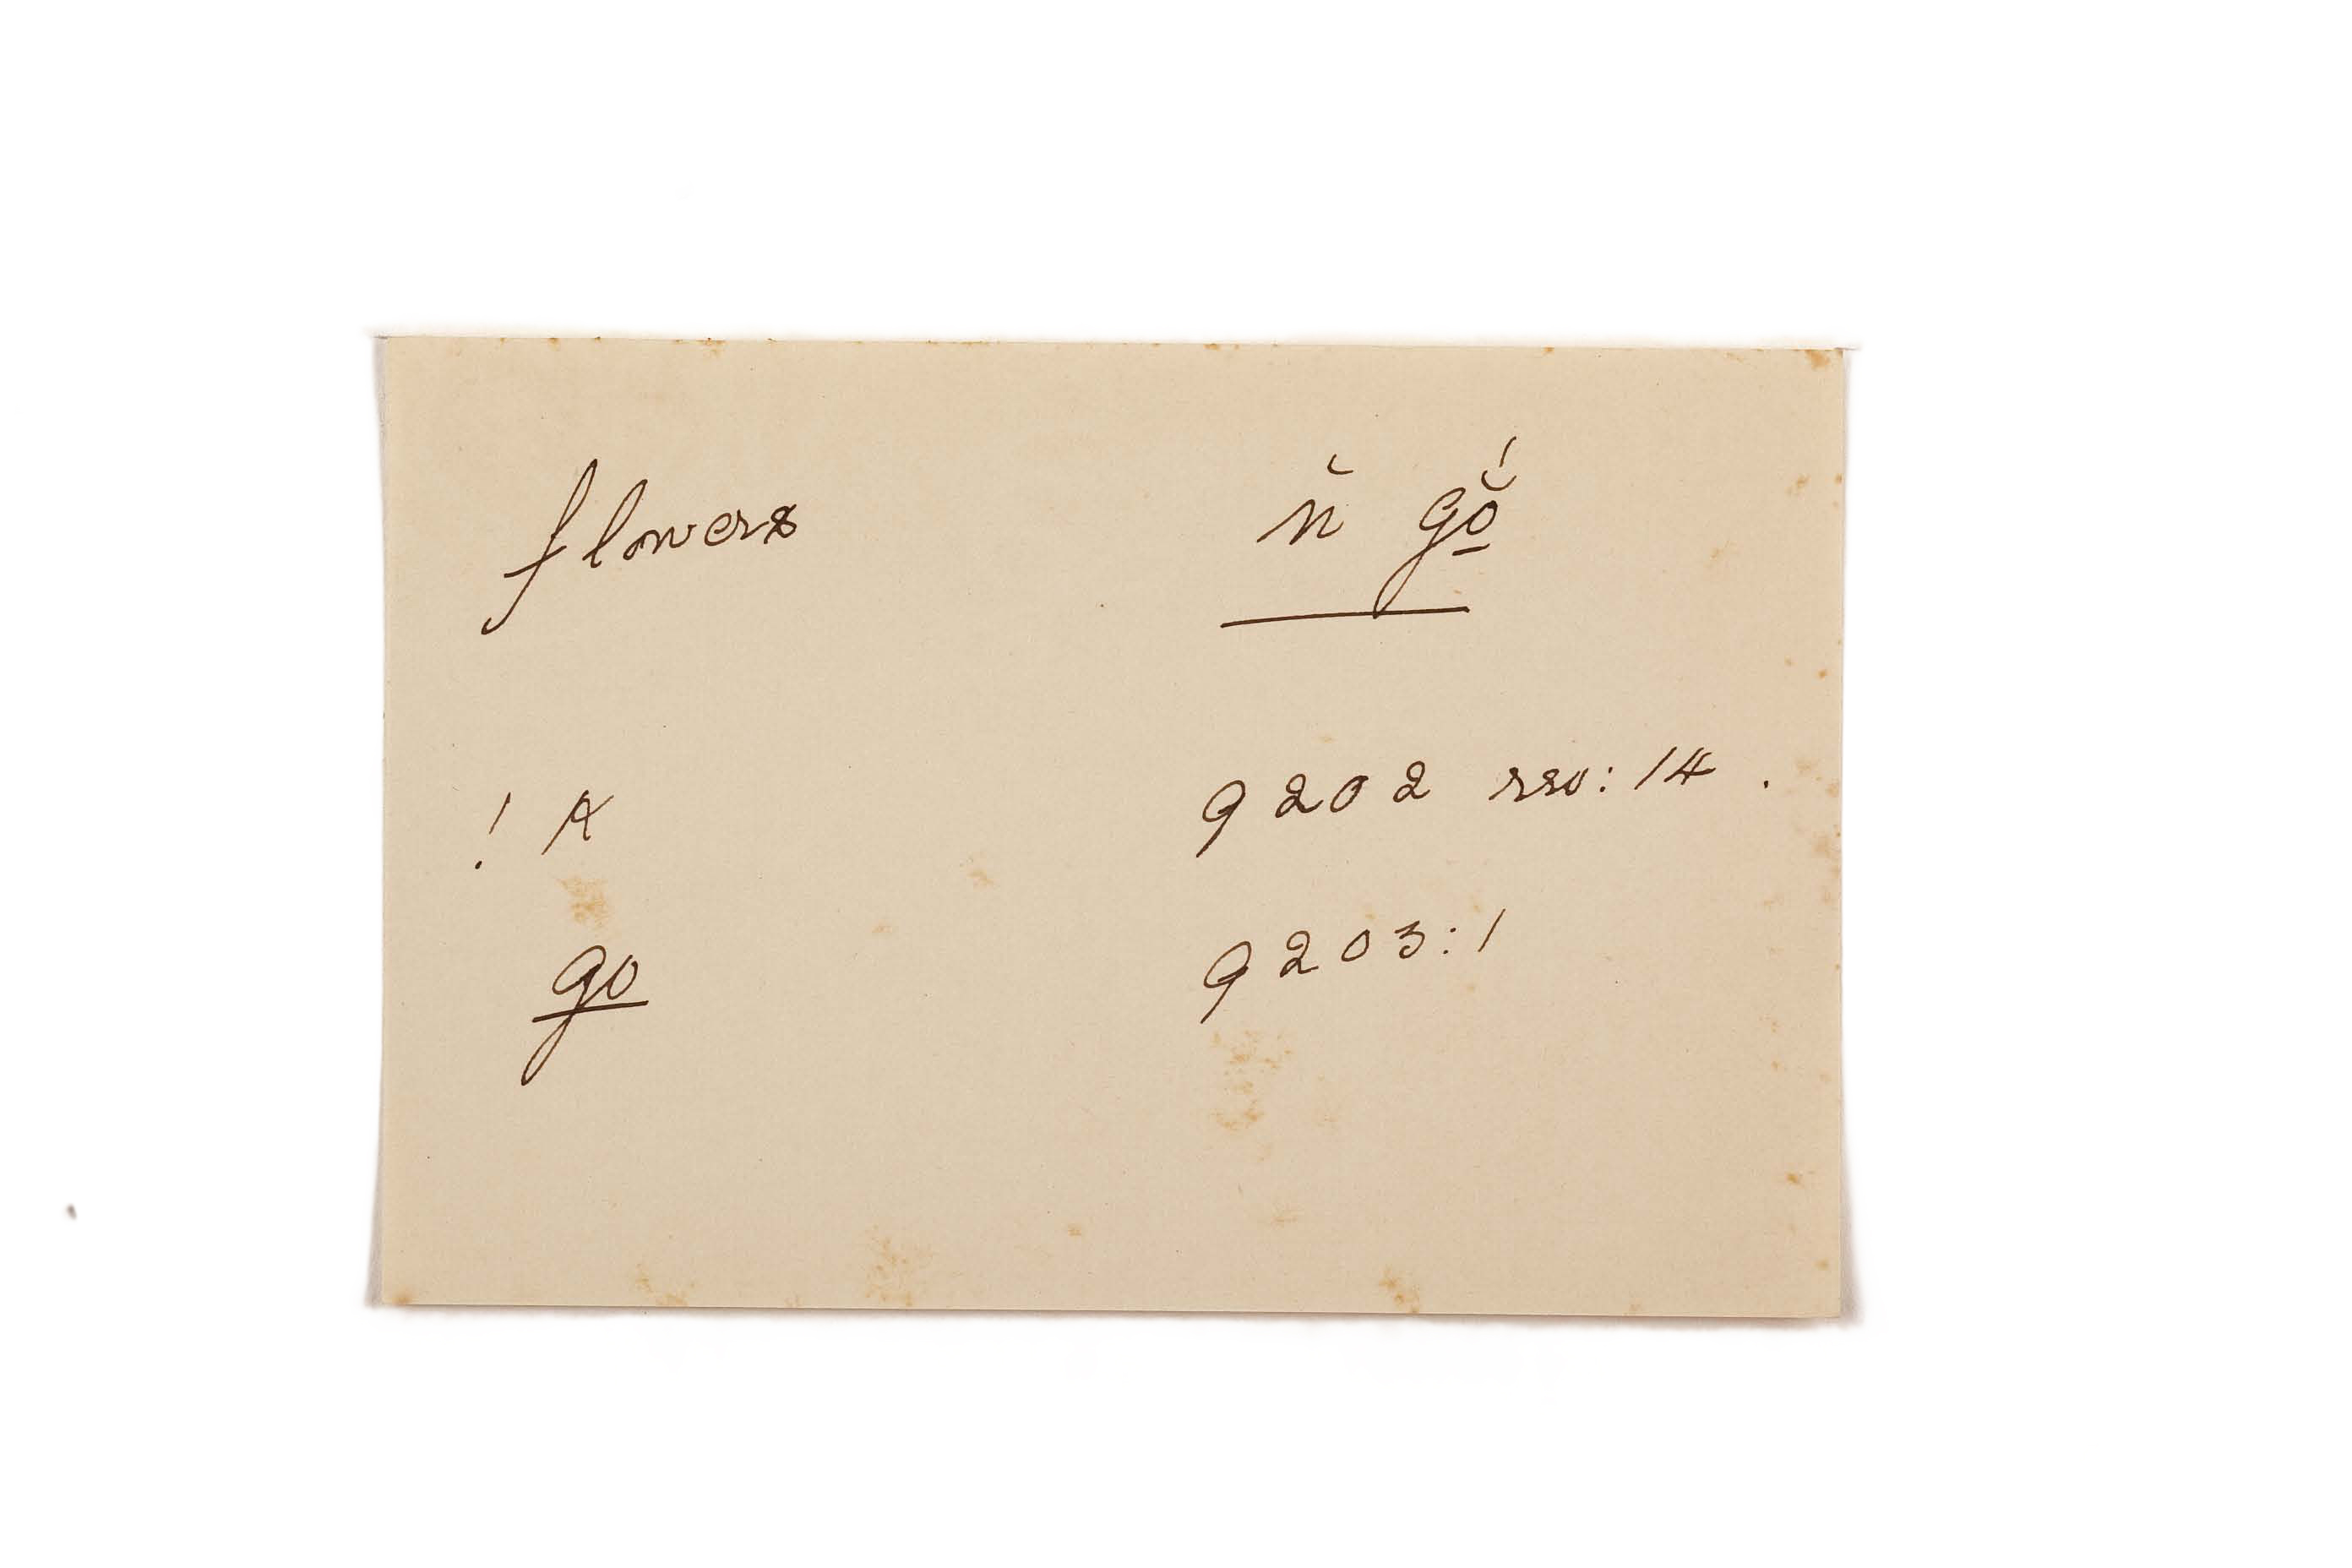 flowers n̆ gŏ̱́
! A 9202 rev: 14 .
go 9203:1